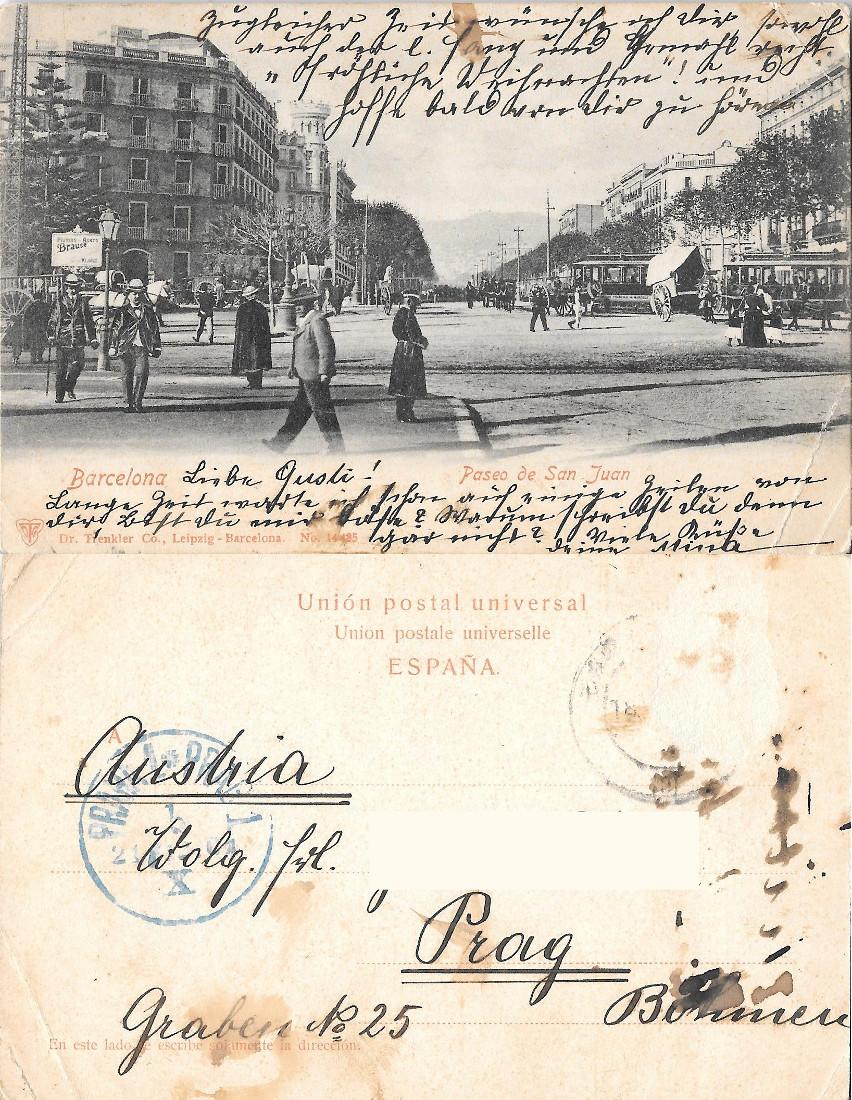 Zugleicher Zeit wünsche ich Dir sowohl
auch der l. Fany und Gemahl recht
"Fröhliche Weihnachten"! und
hoffe bald von Dir zu hören
Plumas - Acero
Brause
Barcelona Liebe Gusti! Paseo de San Juan
Lange Zeit warte ich schon auf einige Zeilen von
dir, bist du mir böse? Warum schreibst du denn
Dr. Trenkler Co., Leipzig - Barcelona. No. 14485 gar nicht? Viele Küße
deine Mina
Unión postal universal
Union postale universelle
ESPAÑA.
A
Austria
Wolg. Frl.
Prag
Böhmen
Graben No 25
En este lado se escribe solamente la dirección.